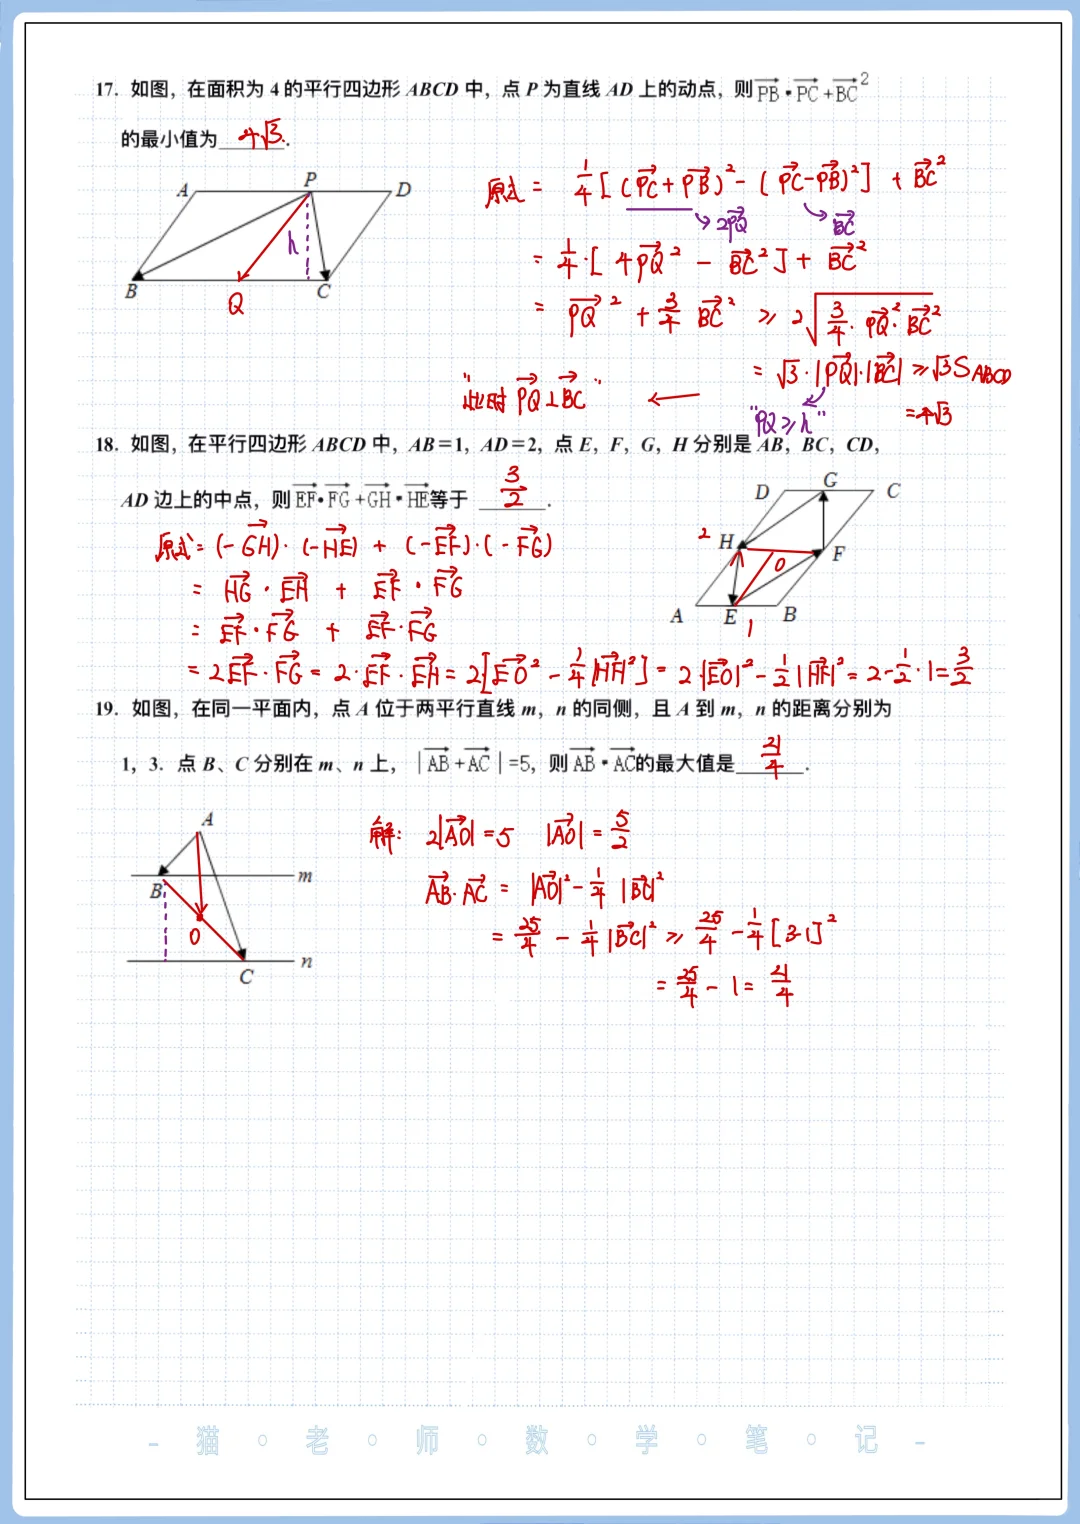 17. 如图，在面积为 4 的平行四边形 ABCD 中，点 P 为直线 AD 上的动点，则 PB·PC+BC²
的最小值为 4√3.
A P D
h
B Q C
原式 = 1/4[(PC+PB)²-(PC-PB)²] + BC²
→2PQ →BC
= 1/4·[4PQ² - BC²] + BC²
= PQ² + 3/4 BC² ≥ 2√(3/4·PQ²·BC²)
= √3·|PQ|·|BC| ≥ √3S ABCD
"此时 PQ⊥BC" ←
"PQ≥h" =4√3
18. 如图，在平行四边形 ABCD 中，AB=1，AD=2，点 E，F，G，H 分别是 AB，BC，CD，
AD 边上的中点，则 EF·FG+GH·HE等于 3/2.
D G C
2 H O F
A E B
1
原式 = (-GH)·(-HE) + (-EF)·(-FG)
= HG·EH + EF·FG
= EF·FG + EF·FG
= 2EF·FG = 2·EF·EH = 2[EO² - 1/4|HF|²] = 2·|EO|² - 1/2|HF|² = 2-1/2·1 = 3/2
19. 如图，在同一平面内，点 A 位于两平行直线 m，n 的同侧，且 A 到 m，n 的距离分别为
1，3．点 B、C 分别在 m、n 上，|AB+AC|=5，则AB·AC的最大值是 21/4.
A
B m
O
C n
解: 2|AO|=5 |AO|=5/2
AB·AC = |AO|²-1/4|BC|²
= 25/4 - 1/4|BC|² ≥ 25/4 - 1/4[3-1]²
= 25/4 - 1 = 21/4
- 猫 · 老 · 师 · 数 · 学 · 笔 · 记 -